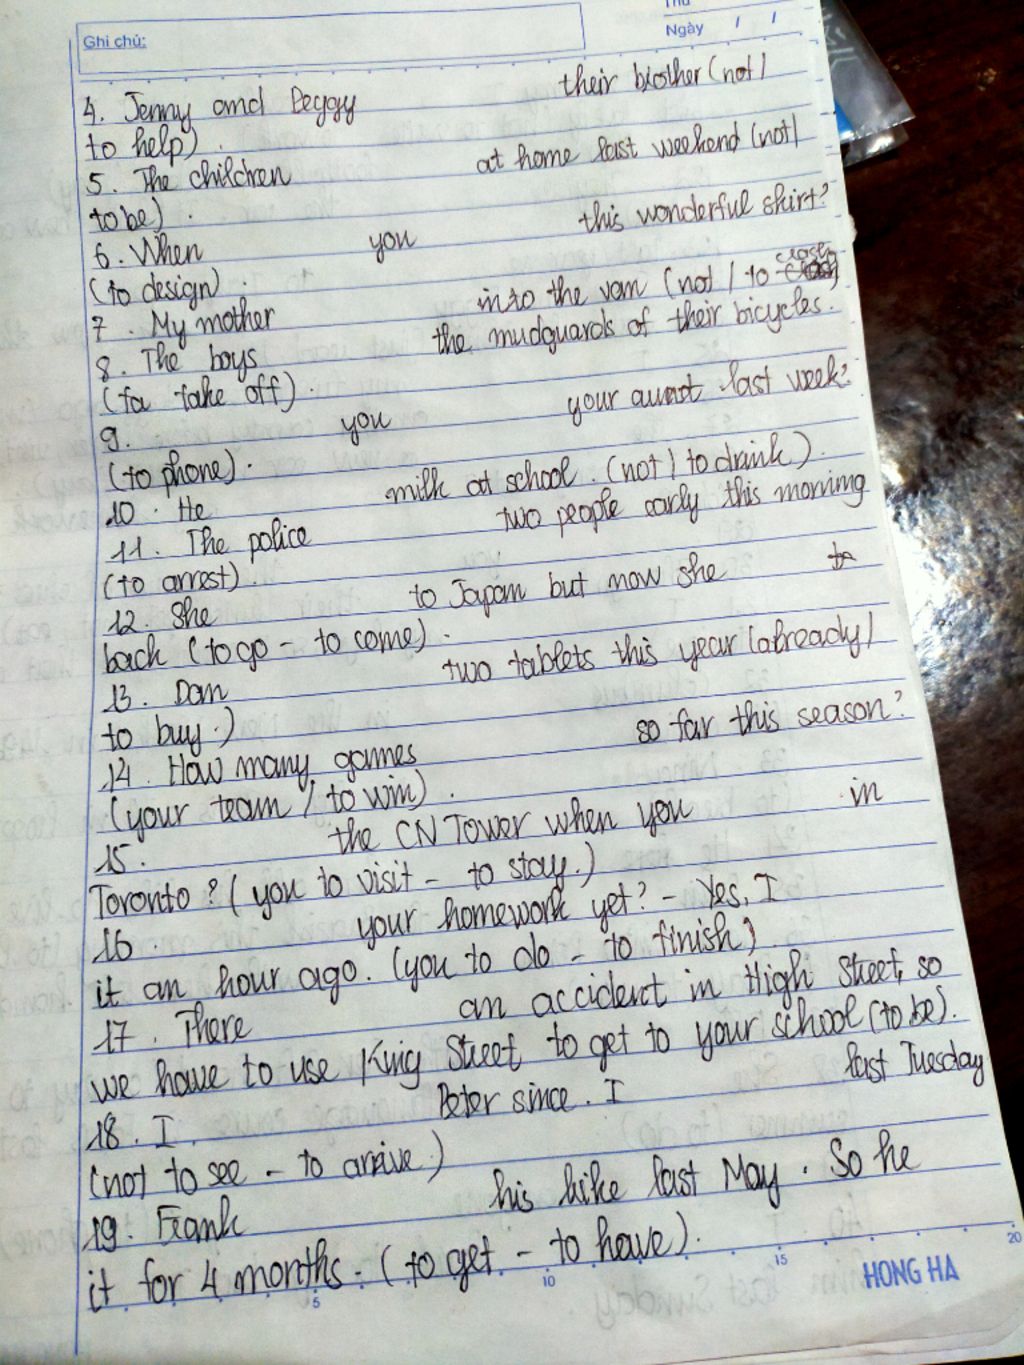 Thứ
Ghi chú:
Ngày / /
4. Jenny and Peggy their brother (not /
to help).
5. The children at home last weekend (not /
to be).
6. When you this wonderful shirt?
(to design).
7. My mother into the van (not / to crash)
8. The boys the mudguards of their bicycles.
(to take off).
9. you your aunt last week?
(to phone).
10. He milk at school. (not / to drink).
11. The police two people early this morning
(to arrest).
12. She to Japan but now she
back (to go - to come).
13. Dan two tablets this year (already /
to buy.)
14. How many games so far this season?
(your team / to win).
15. the CN Tower when you in
Toronto? (you to visit - to stay.)
16. your homework yet? - Yes, I
it an hour ago. (you to do - to finish)
17. There an accident in High Street, so
we have to use King Street to get to your school (to be).
18. I Peter since. I last Tuesday
(not to see - to arrive.)
19. Frank his bike last May. So he
it for 4 months. (to get - to have).
5 10 15 20
HONG HA